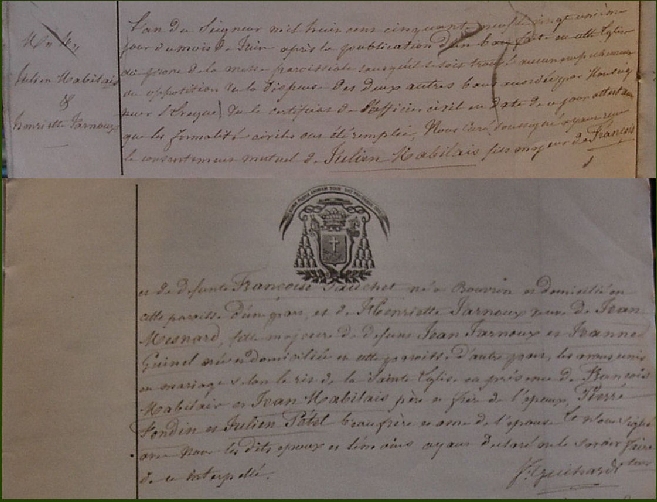 Mge
Julien Habilais
&
Henriette Jarnoux
L'an du Seigneur mil huit cent cinquante neuf vingt unième
jour du mois de Juin après la publication d'un ban faite en cette Eglise
au prone de la messe paroissiale sans qu'il se soit trouvé aucun empêchement
ou opposition de la dispense des deux autres bans accordée par Monseig
neur l'Evêque, Vu le certificat de l'officier civil en date de ce jour attestant
que les formalités civiles ont été remplies, Nous Curé soussigné avons reçu
le consentement mutuel de Julien Habilais fils majeur de François
et de défunte Françoise Fauchet né à Bouvron et domicilié en
cette paroisse d'une part, et de Henriette Jarnoux veuve de Jean
Mesnard, fille majeure de defunt Jean Jarnoux et Jeanne
Guinel née et domiciliée en cette paroisse d'autre part, les avons unis
en mariage selon le rit de la Sainte Eglise en présence de François
Habilais et Jean Habilais père et frère de l'époux, Pierre
Fondin et Julien Patel beau frère et de l'épouse
avec nous les dits époux et témoins ayant déclaré ne le savoir faire
de ce interpellé.
Guihard